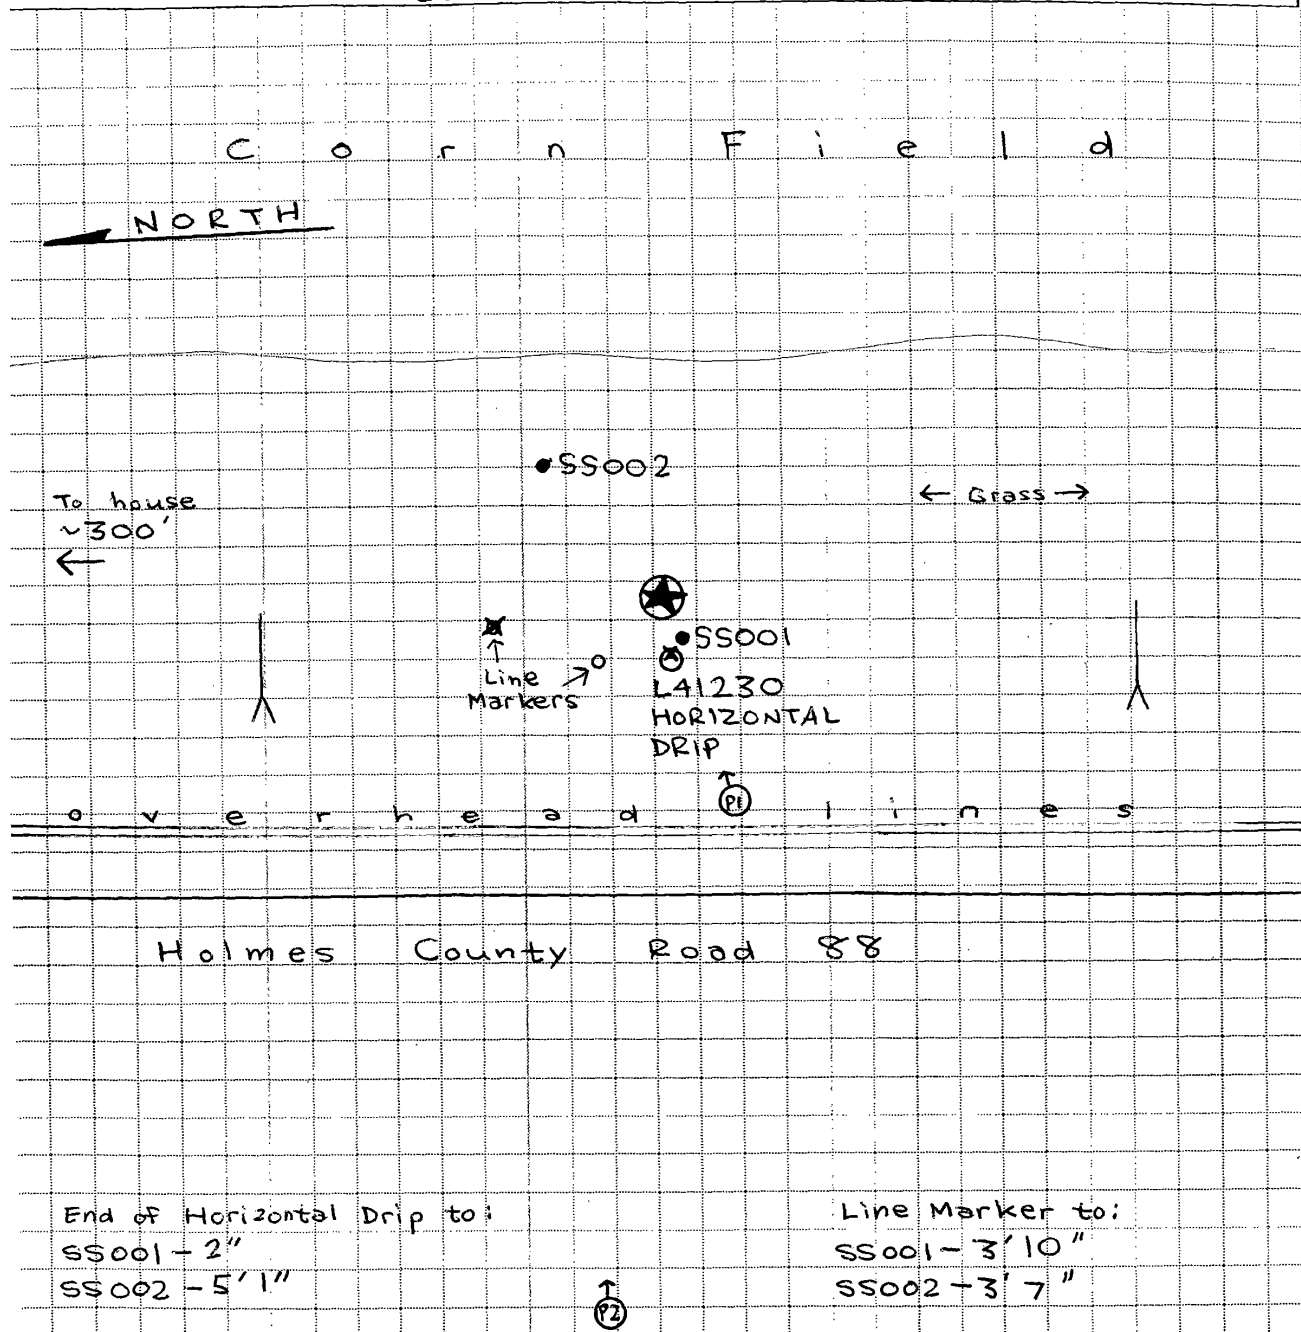 Corn Field
NORTH
SS002
To house
~300'
←
← Grass →
SS001
Line
Markers
L41230
HORIZONTAL
DRIP
P1
overhead lines
Holmes County Road 88
End of Horizontal Drip to:
SS001 - 2"
SS002 - 5' 1"
Line Marker to:
SS001 - 3' 10"
SS002 - 3' 7"
P2